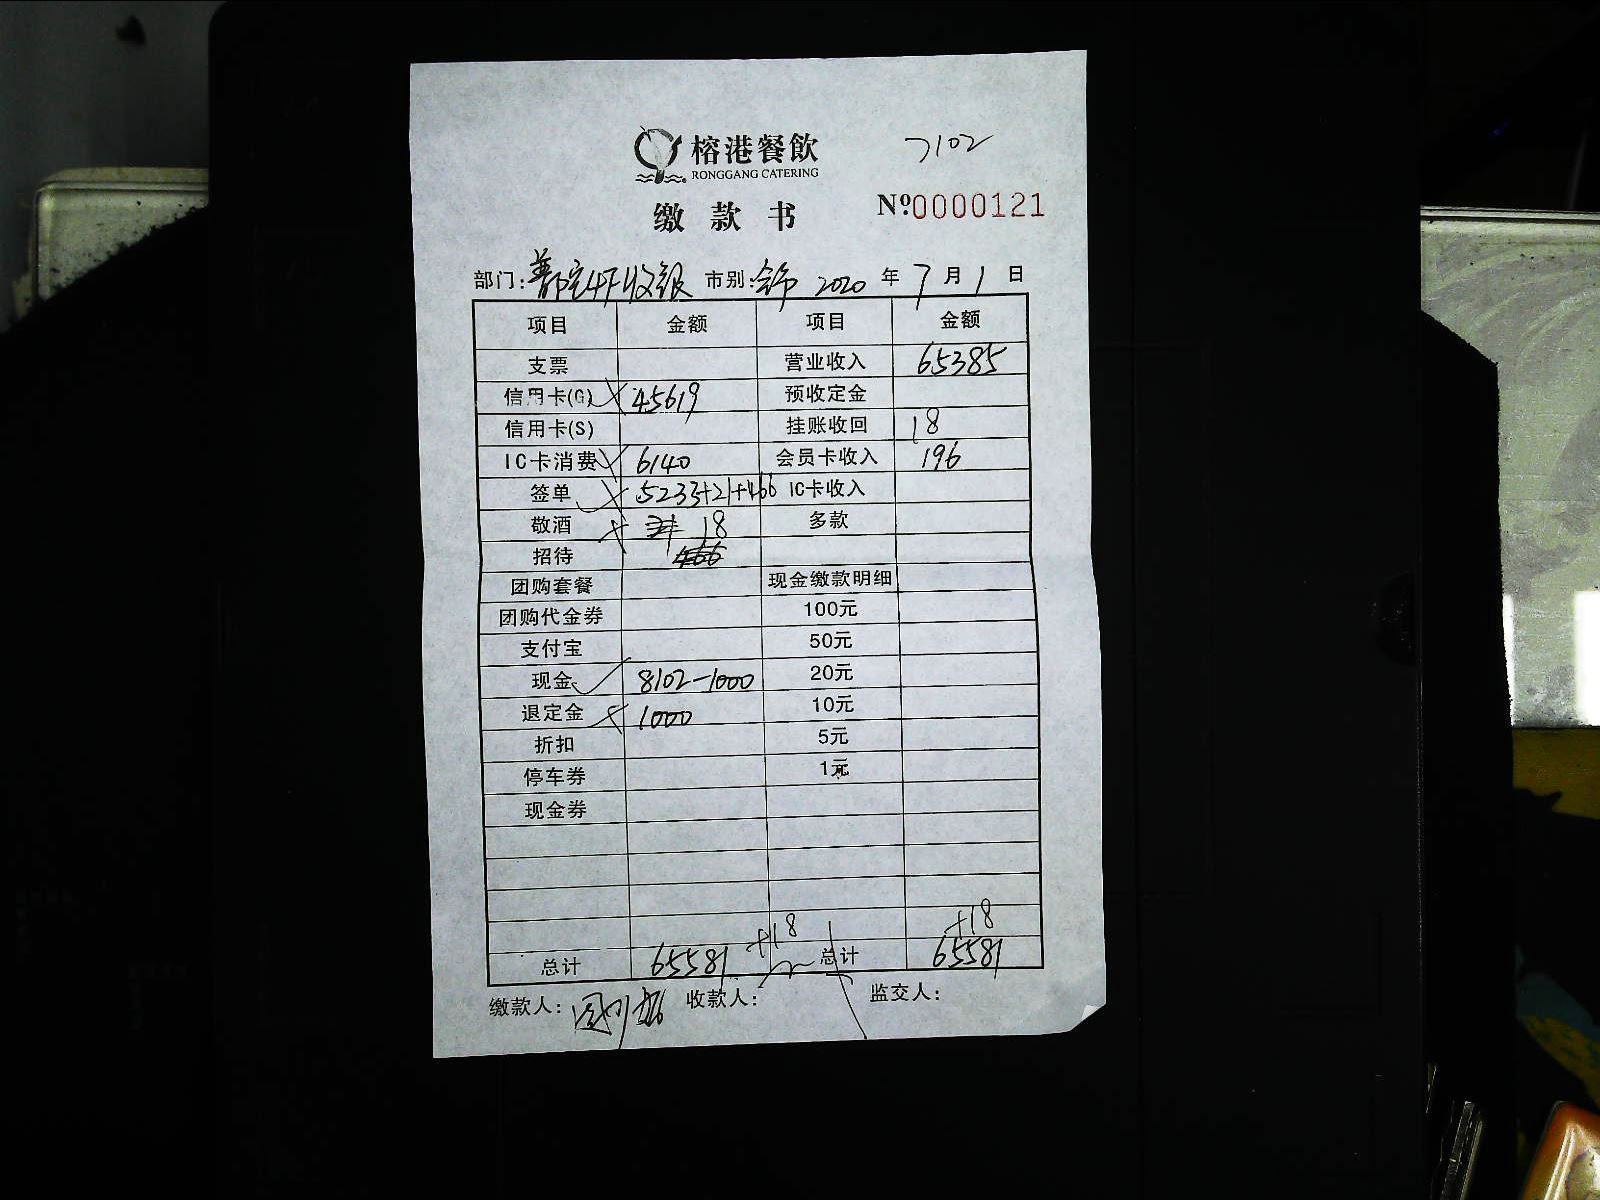 榕港餐飲 7102
RONGGANG CATERING
缴款书 Nº:0000121
部门: 4F收银 市别: 2020 年 7 月 1 日
项目 金额 项目 金额
支票 营业收入 65385
信用卡(G) 45619 预收定金
信用卡(S) 挂账收回 18
IC卡消费 6140 会员卡收入 196
签单 5233+21+466 IC卡收入
敬酒 18 多款
招待 466
团购套餐 现金缴款明细
团购代金券 100元
支付宝 50元
现金 8102-1000 20元
退定金 1000 10元
折扣 5元
停车券 1元
现金券
+18 +18
总计 65581 总计 65581
缴款人: 收款人: 监交人: